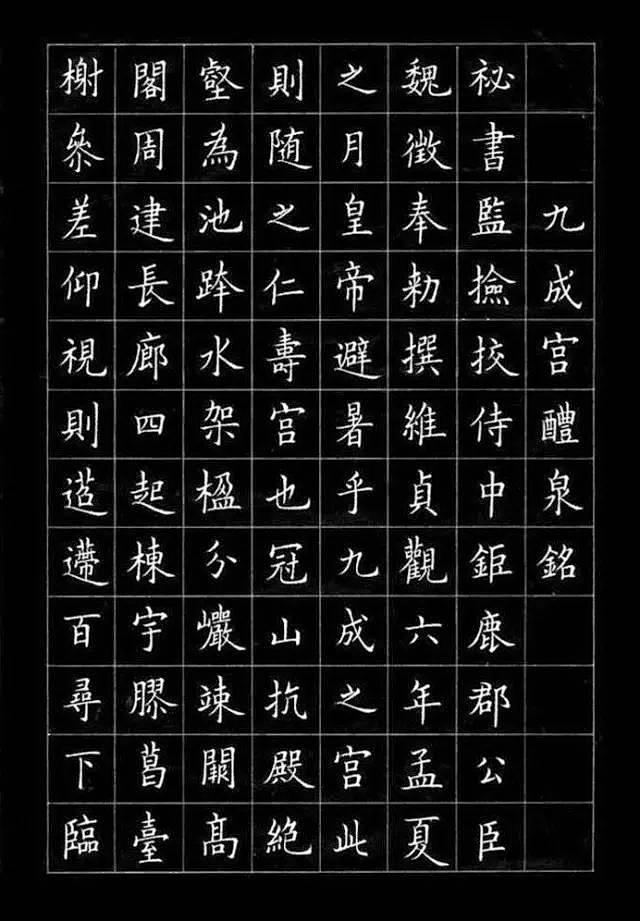 九成宫醴泉銘
秘書監撿挍侍中鉅鹿郡公臣
魏徵奉勑撰維貞觀六年孟夏
之月皇帝避暑乎九成之宫此
則随之仁壽宫也冠山抗殿絶
壑為池跨水架楹分巗竦闕髙
閣周建長廊四起棟宇膠葛臺
榭叅差仰視則迢遰百尋下臨